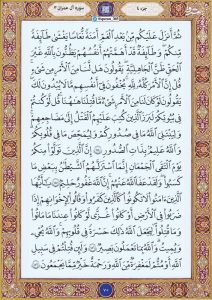 جزء ٤
سوره آل عمران ٣
ثُمَّ أَنزَلَ عَلَيْكُم مِّن بَعْدِ الْغَمِّ أَمَنَةً نُّعَاسًا يَغْشَىٰ طَائِفَةً
مِّنكُمْ وَطَائِفَةٌ قَدْ أَهَمَّتْهُمْ أَنفُسُهُمْ يَظُنُّونَ بِاللَّهِ غَيْرَ
الْحَقِّ ظَنَّ الْجَاهِلِيَّةِ يَقُولُونَ هَل لَّنَا مِنَ الْأَمْرِ مِن شَيْءٍ
قُلْ إِنَّ الْأَمْرَ كُلَّهُ لِلَّهِ يُخْفُونَ فِي أَنفُسِهِم مَّا لَا يُبْدُونَ لَكَ
يَقُولُونَ لَوْ كَانَ لَنَا مِنَ الْأَمْرِ شَيْءٌ مَّا قُتِلْنَا هَاهُنَا قُل لَّوْ كُنتُمْ
فِي بُيُوتِكُمْ لَبَرَزَ الَّذِينَ كُتِبَ عَلَيْهِمُ الْقَتْلُ إِلَىٰ مَضَاجِعِهِمْ
وَلِيَبْتَلِيَ اللَّهُ مَا فِي صُدُورِكُمْ وَلِيُمَحِّصَ مَا فِي قُلُوبِكُمْ
وَاللَّهُ عَلِيمٌ بِذَاتِ الصُّدُورِ إِنَّ الَّذِينَ تَوَلَّوْا مِنكُمْ
يَوْمَ الْتَقَى الْجَمْعَانِ إِنَّمَا اسْتَزَلَّهُمُ الشَّيْطَانُ بِبَعْضِ مَا
كَسَبُوا وَلَقَدْ عَفَا اللَّهُ عَنْهُمْ إِنَّ اللَّهَ غَفُورٌ حَلِيمٌ يَا أَيُّهَا
الَّذِينَ آمَنُوا لَا تَكُونُوا كَالَّذِينَ كَفَرُوا وَقَالُوا لِإِخْوَانِهِمْ إِذَا
ضَرَبُوا فِي الْأَرْضِ أَوْ كَانُوا غُزًّى لَّوْ كَانُوا عِندَنَا مَا مَاتُوا
وَمَا قُتِلُوا لِيَجْعَلَ اللَّهُ ذَٰلِكَ حَسْرَةً فِي قُلُوبِهِمْ وَاللَّهُ يُحْيِي
وَيُمِيتُ وَاللَّهُ بِمَا تَعْمَلُونَ بَصِيرٌ وَلَئِن قُتِلْتُمْ فِي سَبِيلِ
اللَّهِ أَوْ مُتُّمْ لَمَغْفِرَةٌ مِّنَ اللَّهِ وَرَحْمَةٌ خَيْرٌ مِّمَّا يَجْمَعُونَ
٧٠